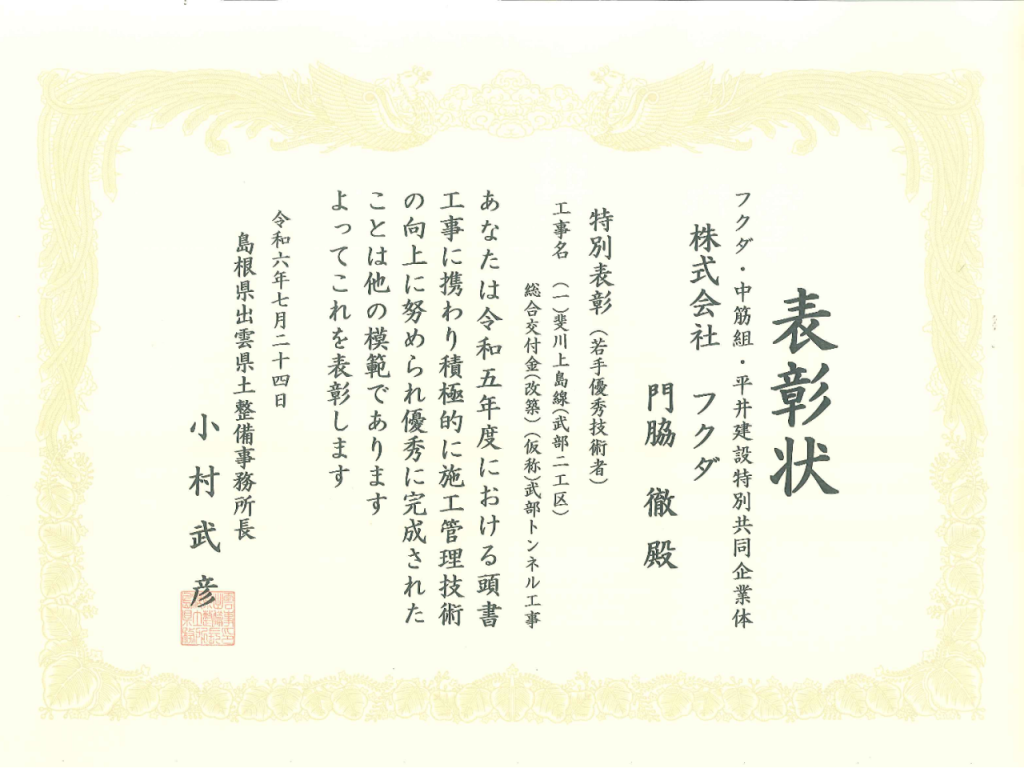 表彰状
フクダ・中筋組・平井建設特別共同企業体
株式会社 フクダ
門脇 徹 殿
特別表彰（若手優秀技術者）
工事名 （一）斐川上島線（武部二工区）
総合交付金（改築）（仮称）武部トンネル工事
あなたは令和五年度における頭書
工事に携わり積極的に施工管理技術
の向上に努められ優秀に完成された
ことは他の模範であります
よってこれを表彰します
令和六年七月二十四日
島根県出雲県土整備事務所長
小村武彦